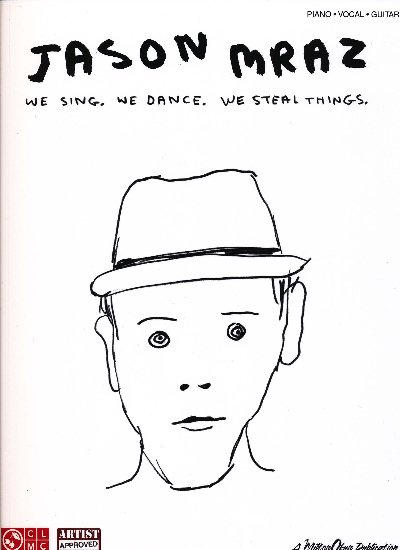 PIANO • VOCAL • GUITAR
JASON MRAZ
WE SING. WE DANCE. WE STEAL THINGS.
CL
MC
ARTIST
APPROVED
A Milton Okun Publication